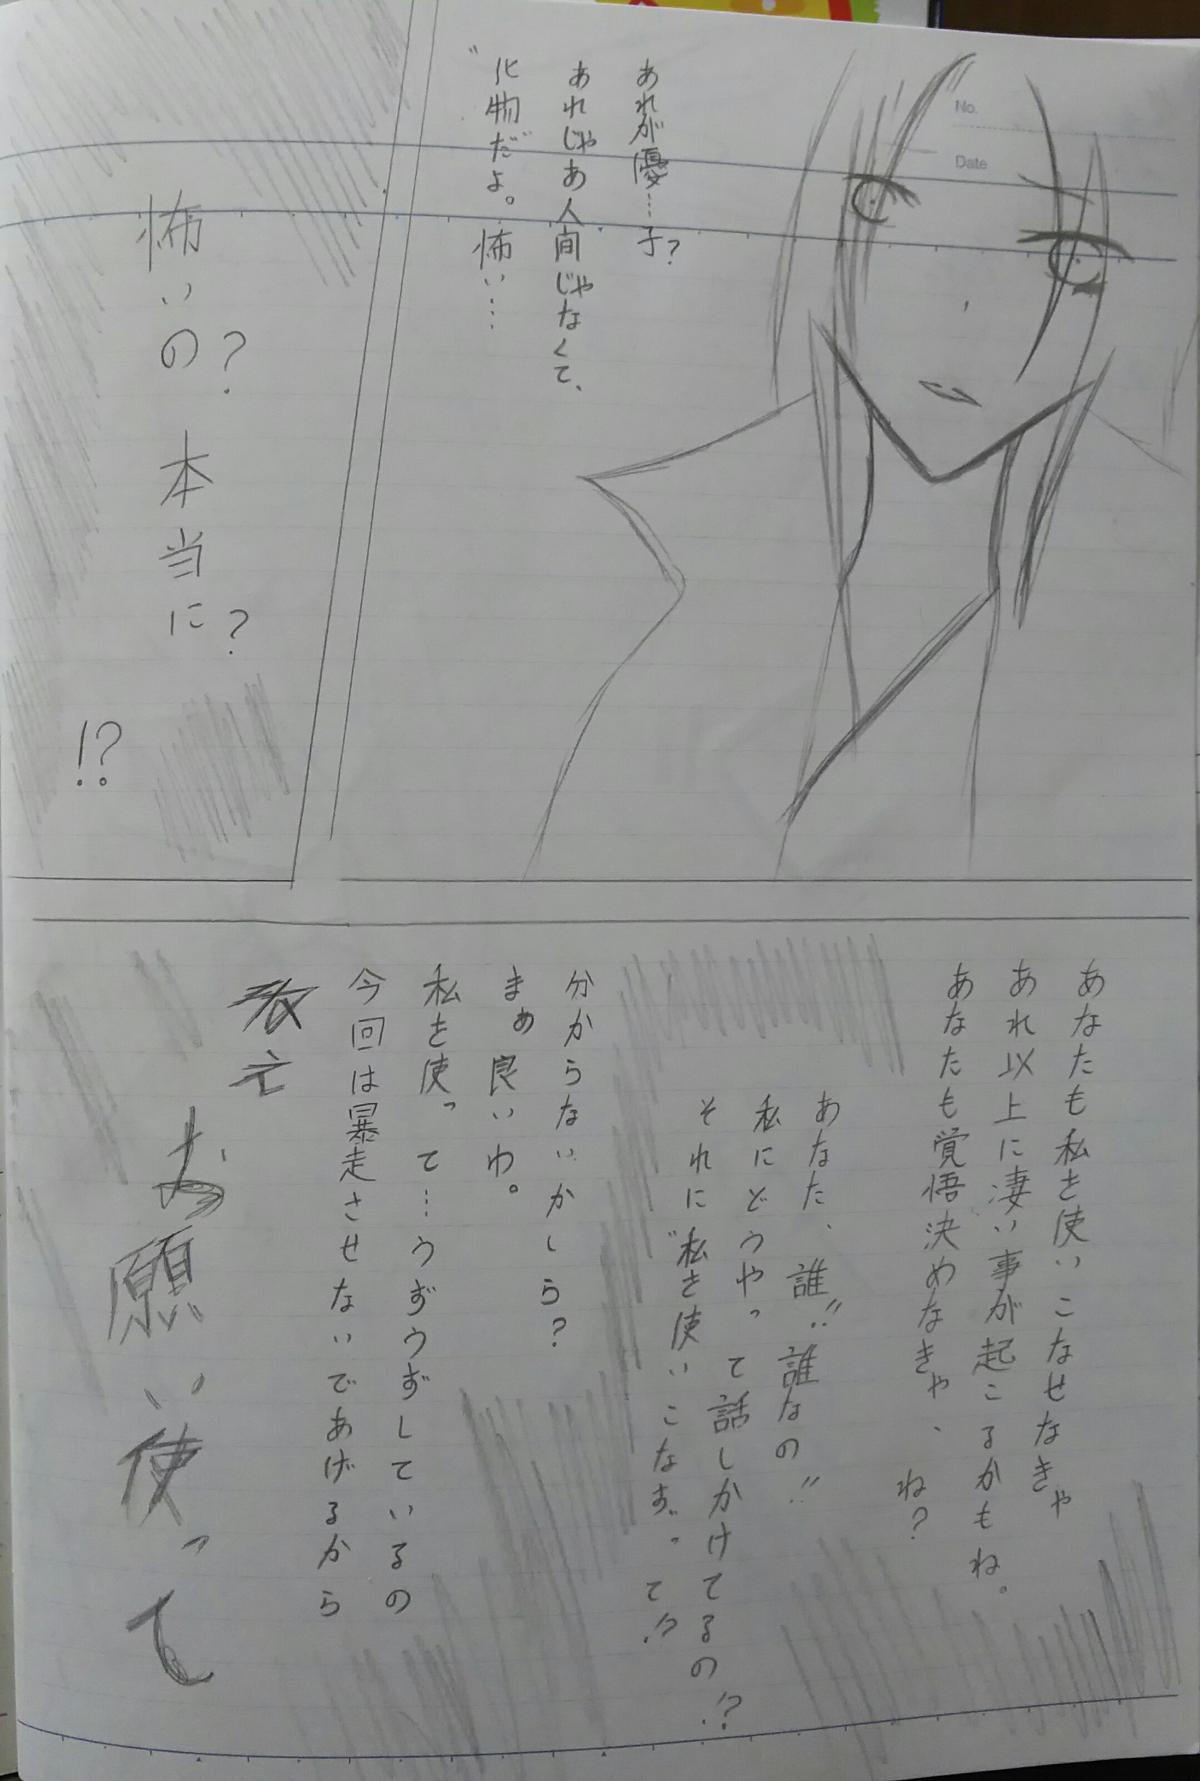 No.
Date
あれが優…子?
あれじゃあ人間じゃなくて、
〝化物〟だよ。怖い…
怖いの?本当に?
!?
あなたも私を使いこなせなきゃ
あれ以上に凄い事が起こるかもね。
あなたも覚悟決めなきゃ、ね?
あなた、誰!!誰なの!!
私にどうやって話しかけてるの!?
それに〝私を使いこなす〟って!?
分からないかしら?
まぁ良いわ。
私を使って…うずうずしているの
今回は暴走させないであげるから
お願い使って